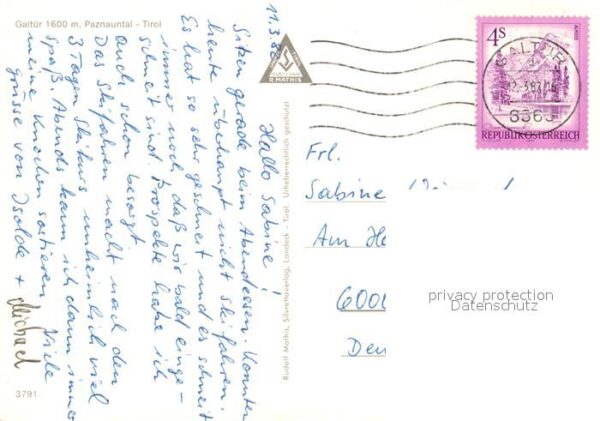 Galtür 1600 m, Paznauntal - Tirol
11.3.8
Hallo Sabine!
Sitzen gerade beim Abendessen. Konnten
heute überhaupt nicht skifahren.
Es hat so sehr geschneit und es schneit
immer noch, daß wir bald einge-
schneit sind. Prospekte habe ich
auch schon besorgt.
Das Skifahren macht nach den
3 Tagen Skikurs unheimlich viel
Spaß. Abends kann ich dann immer
meine Knochen sortieren. Viele
grüsse von Isolde + Michael
3791
R. MATHIS
Rudolf Mathis, Silvrettaverlag, Landeck - Tirol. Urheberrechtlich geschützt!
4S
ALMSEE
REPUBLIK ÖSTERREICH
GALTÜR
12.-3.82-16
6563
Frl.
Sabine
Am He
6000
privacy protection
Datenschutz
Deu